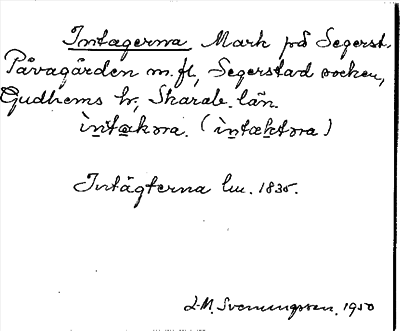 Intagerna Mark på Segerst.
Påvagården m.fl., Segerstad socken,
Gudhems hr, Skarab. län.
ìntækɷra. (ìntæktɷra)
Intägterna lm. 1835.
L-M. Svenungsson. 1950